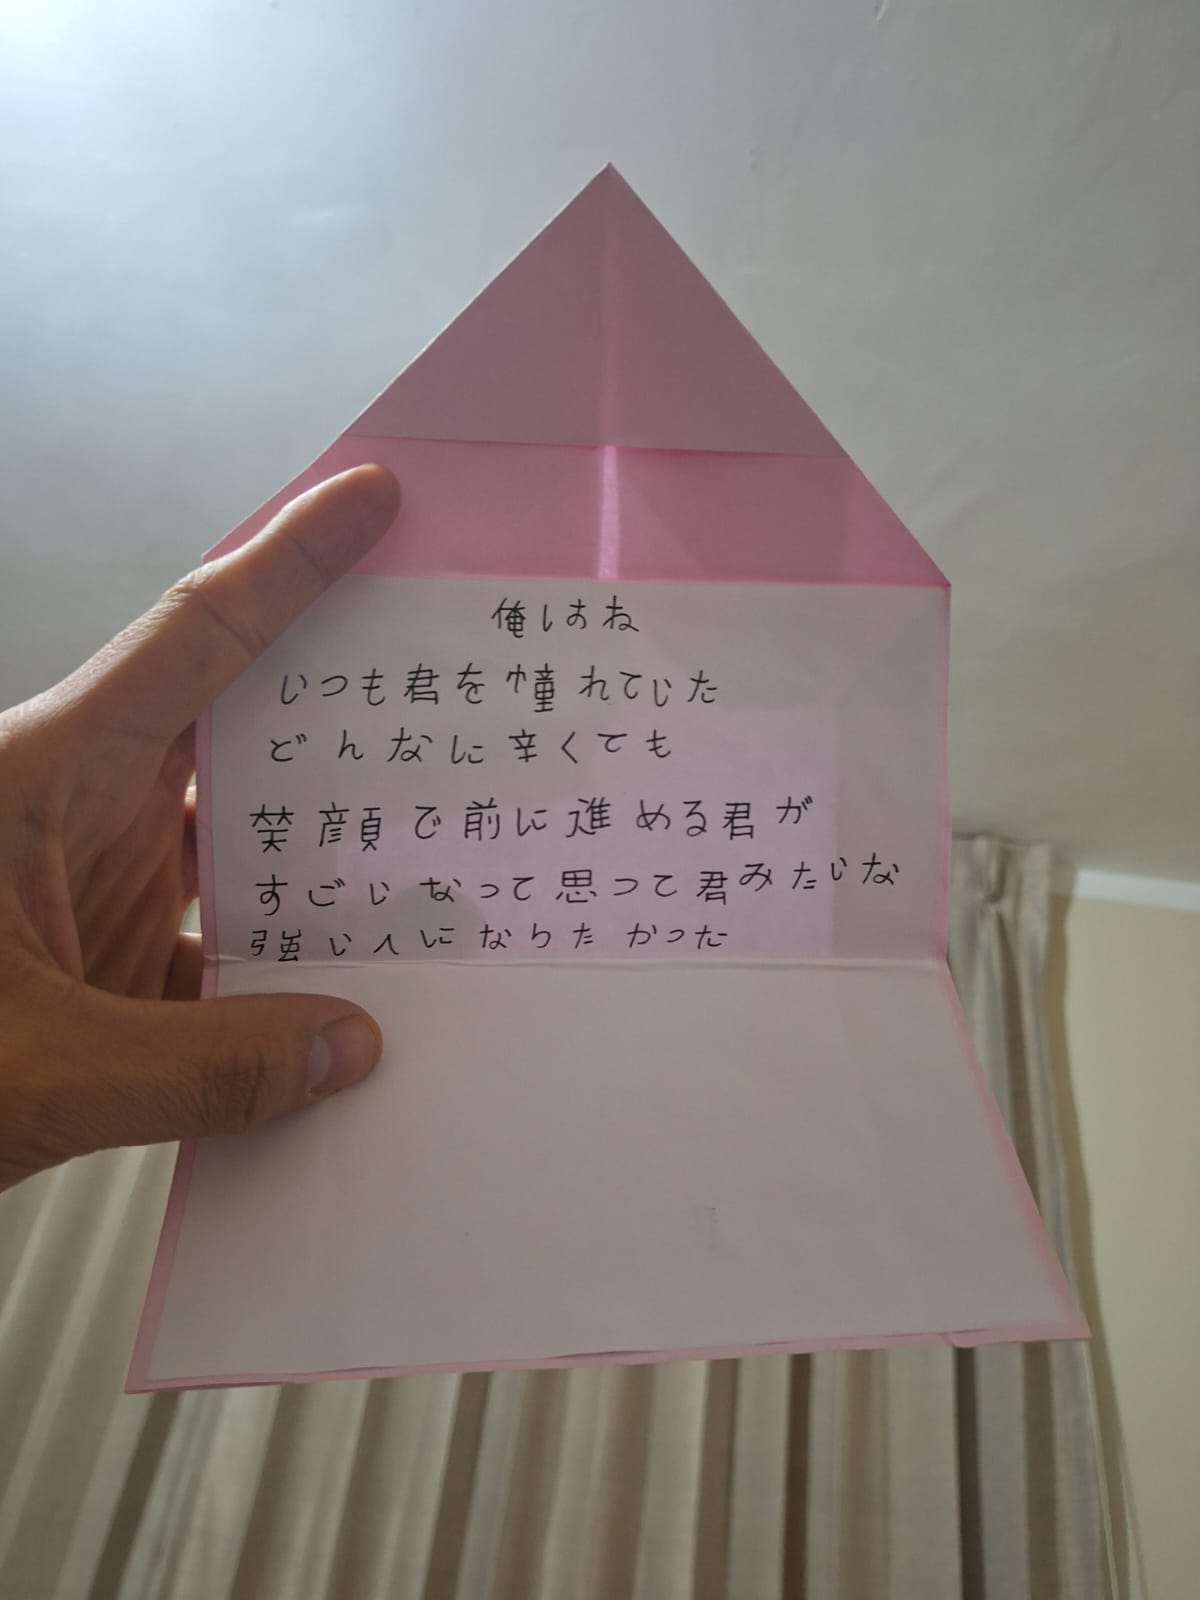 俺はね
いつも君を憧れていた
どんなに辛くても
笑顔で前に進める君が
すごいなって思って君みたいな
強い人になりたかった